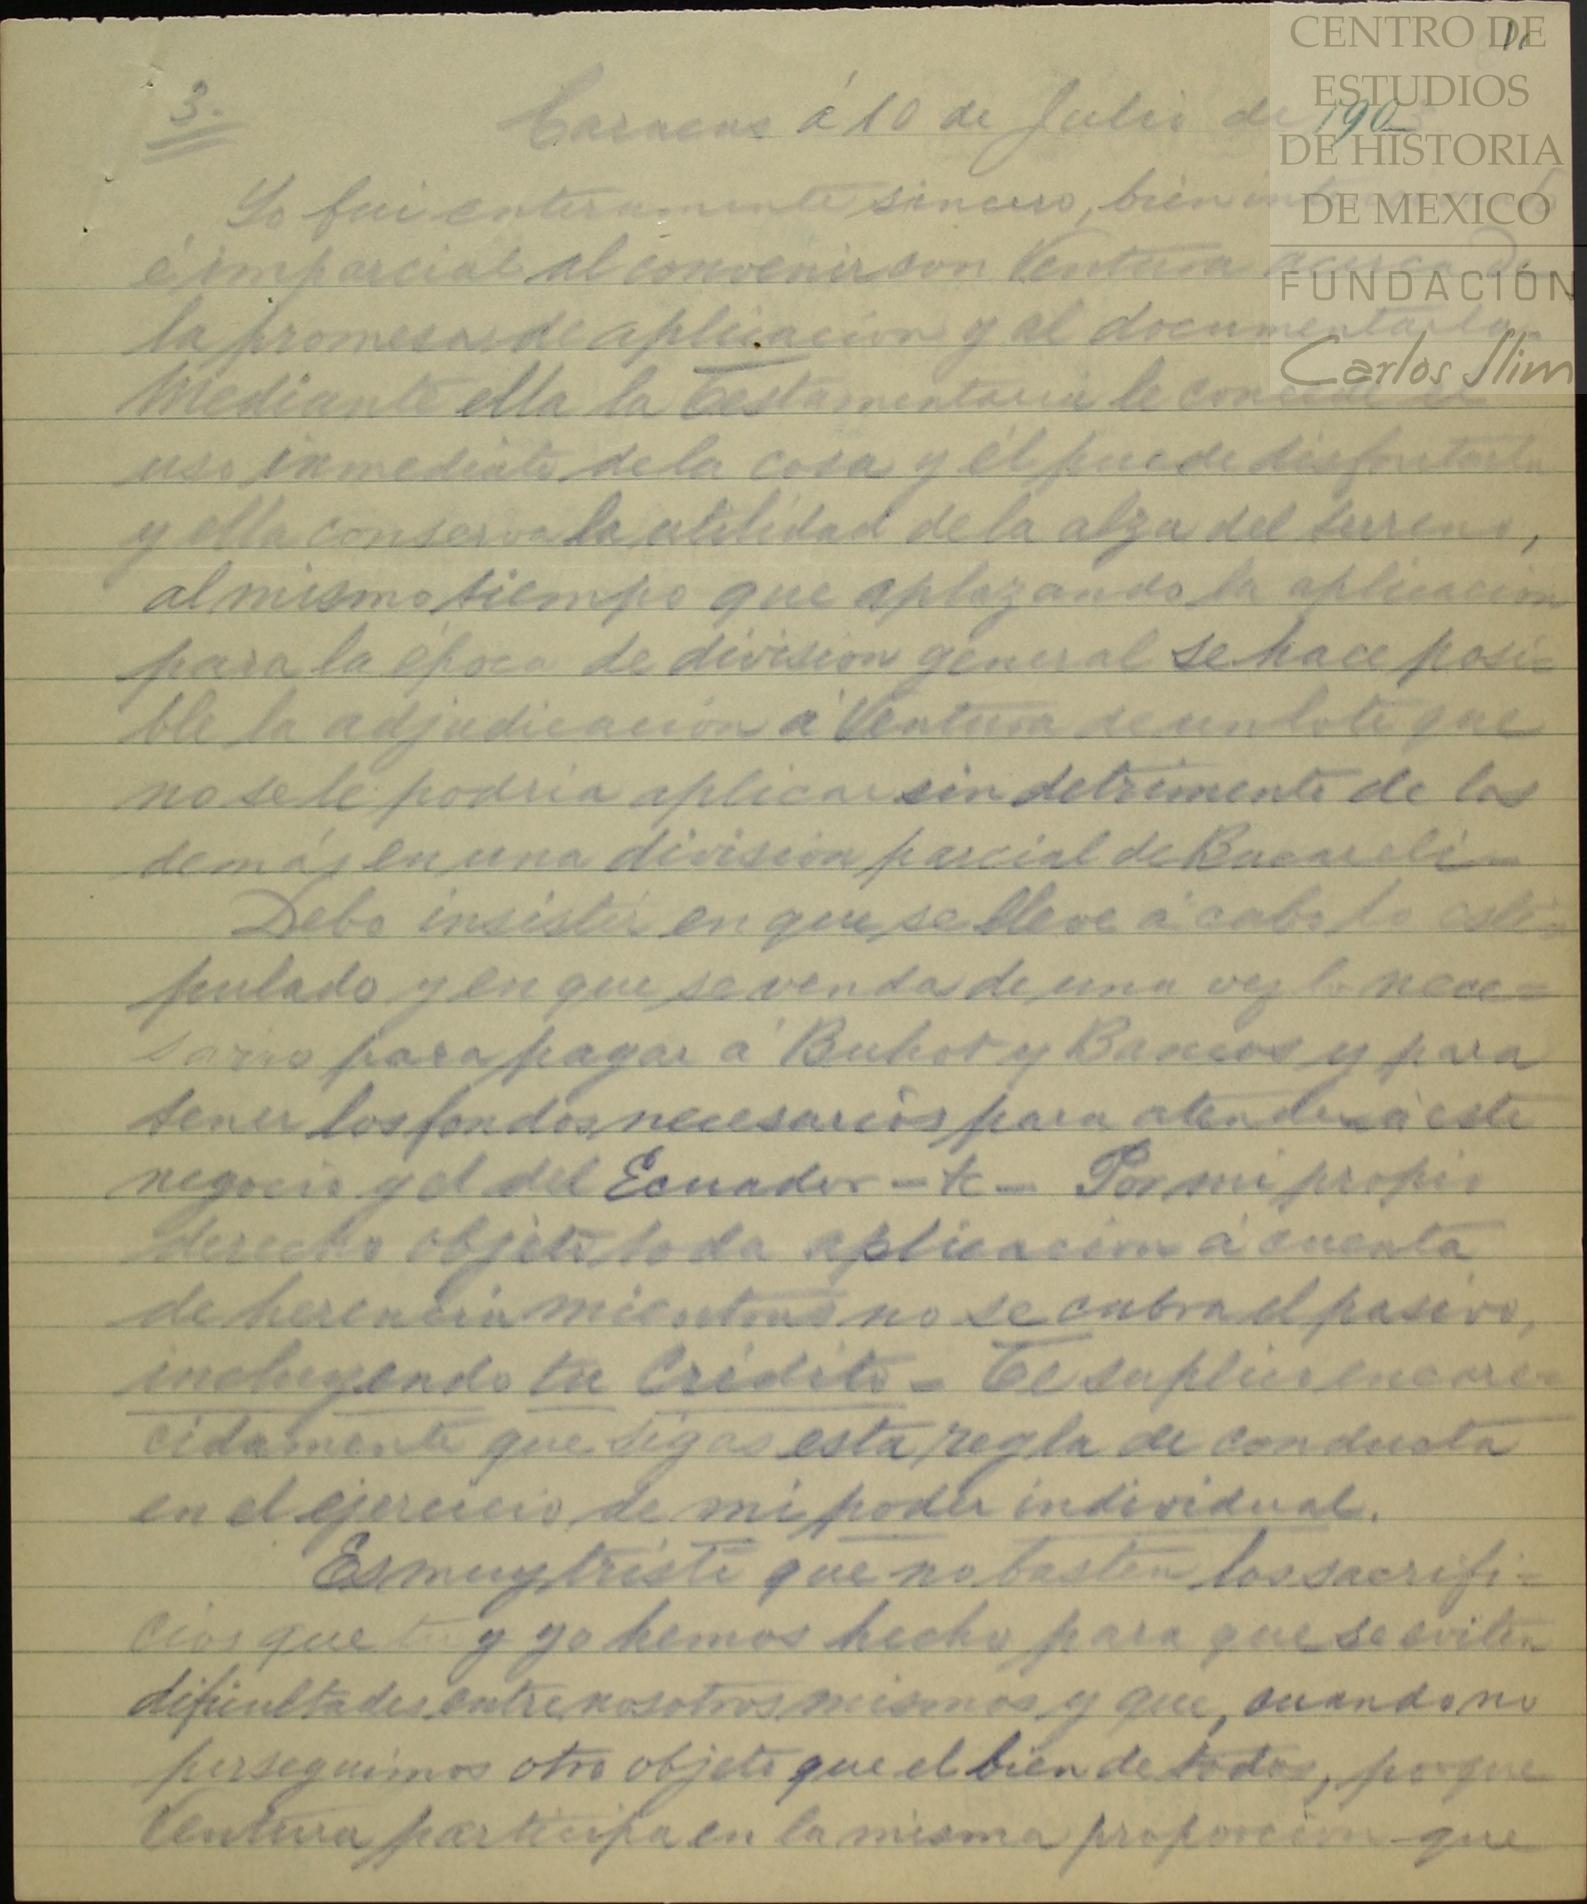 CENTRO DE
ESTUDIOS
DE HISTORIA
DE MEXICO
FUNDACIÓN
Carlos Slim
3.
Caracas á 10 de Julio de 190
Yo fui enteramente sincero, bien
é imparcial al convenir con Ventura acerca de
la promesa de aplicacion y al documentarla.
Mediante ella la Testamentaria le concede el
uso inmediato de la cosa y él puede disfrutarla
y ella conserva la utilidad de la alza del terreno,
al mismo tiempo que aplazando la aplicacion
para la época de division general se hace posi=
ble la adjudicacion á Ventura de un lote que
no se le podria aplicar sin detrimento de los
demás en una division parcial de Bucareli -
Debo insistir en que se lleve á cabo lo esti=
pulado y en que se venda de una vez lo nece=
sario para pagar á Buhot y Bancos y para
tener los fondos necesarios para atender á este
negocio y el del Ecuador - &c - Por mi propio
derecho objeto toda aplicacion á cuenta
de herencia mientras no se cubra el pasivo,
incluyendo tu Crédito - Te suplico encare=
cidamente que sigas esta regla de conducta
en el ejercicio de mi poder individual.
Es muy triste que no basten los sacrifi=
cios que tu y yo hemos hecho para que se eviten
dificultades entre nosotros mismos y que, cuando no
perseguimos otro objeto que el bien de todos, porque
Ventura participa en la misma proporcion que